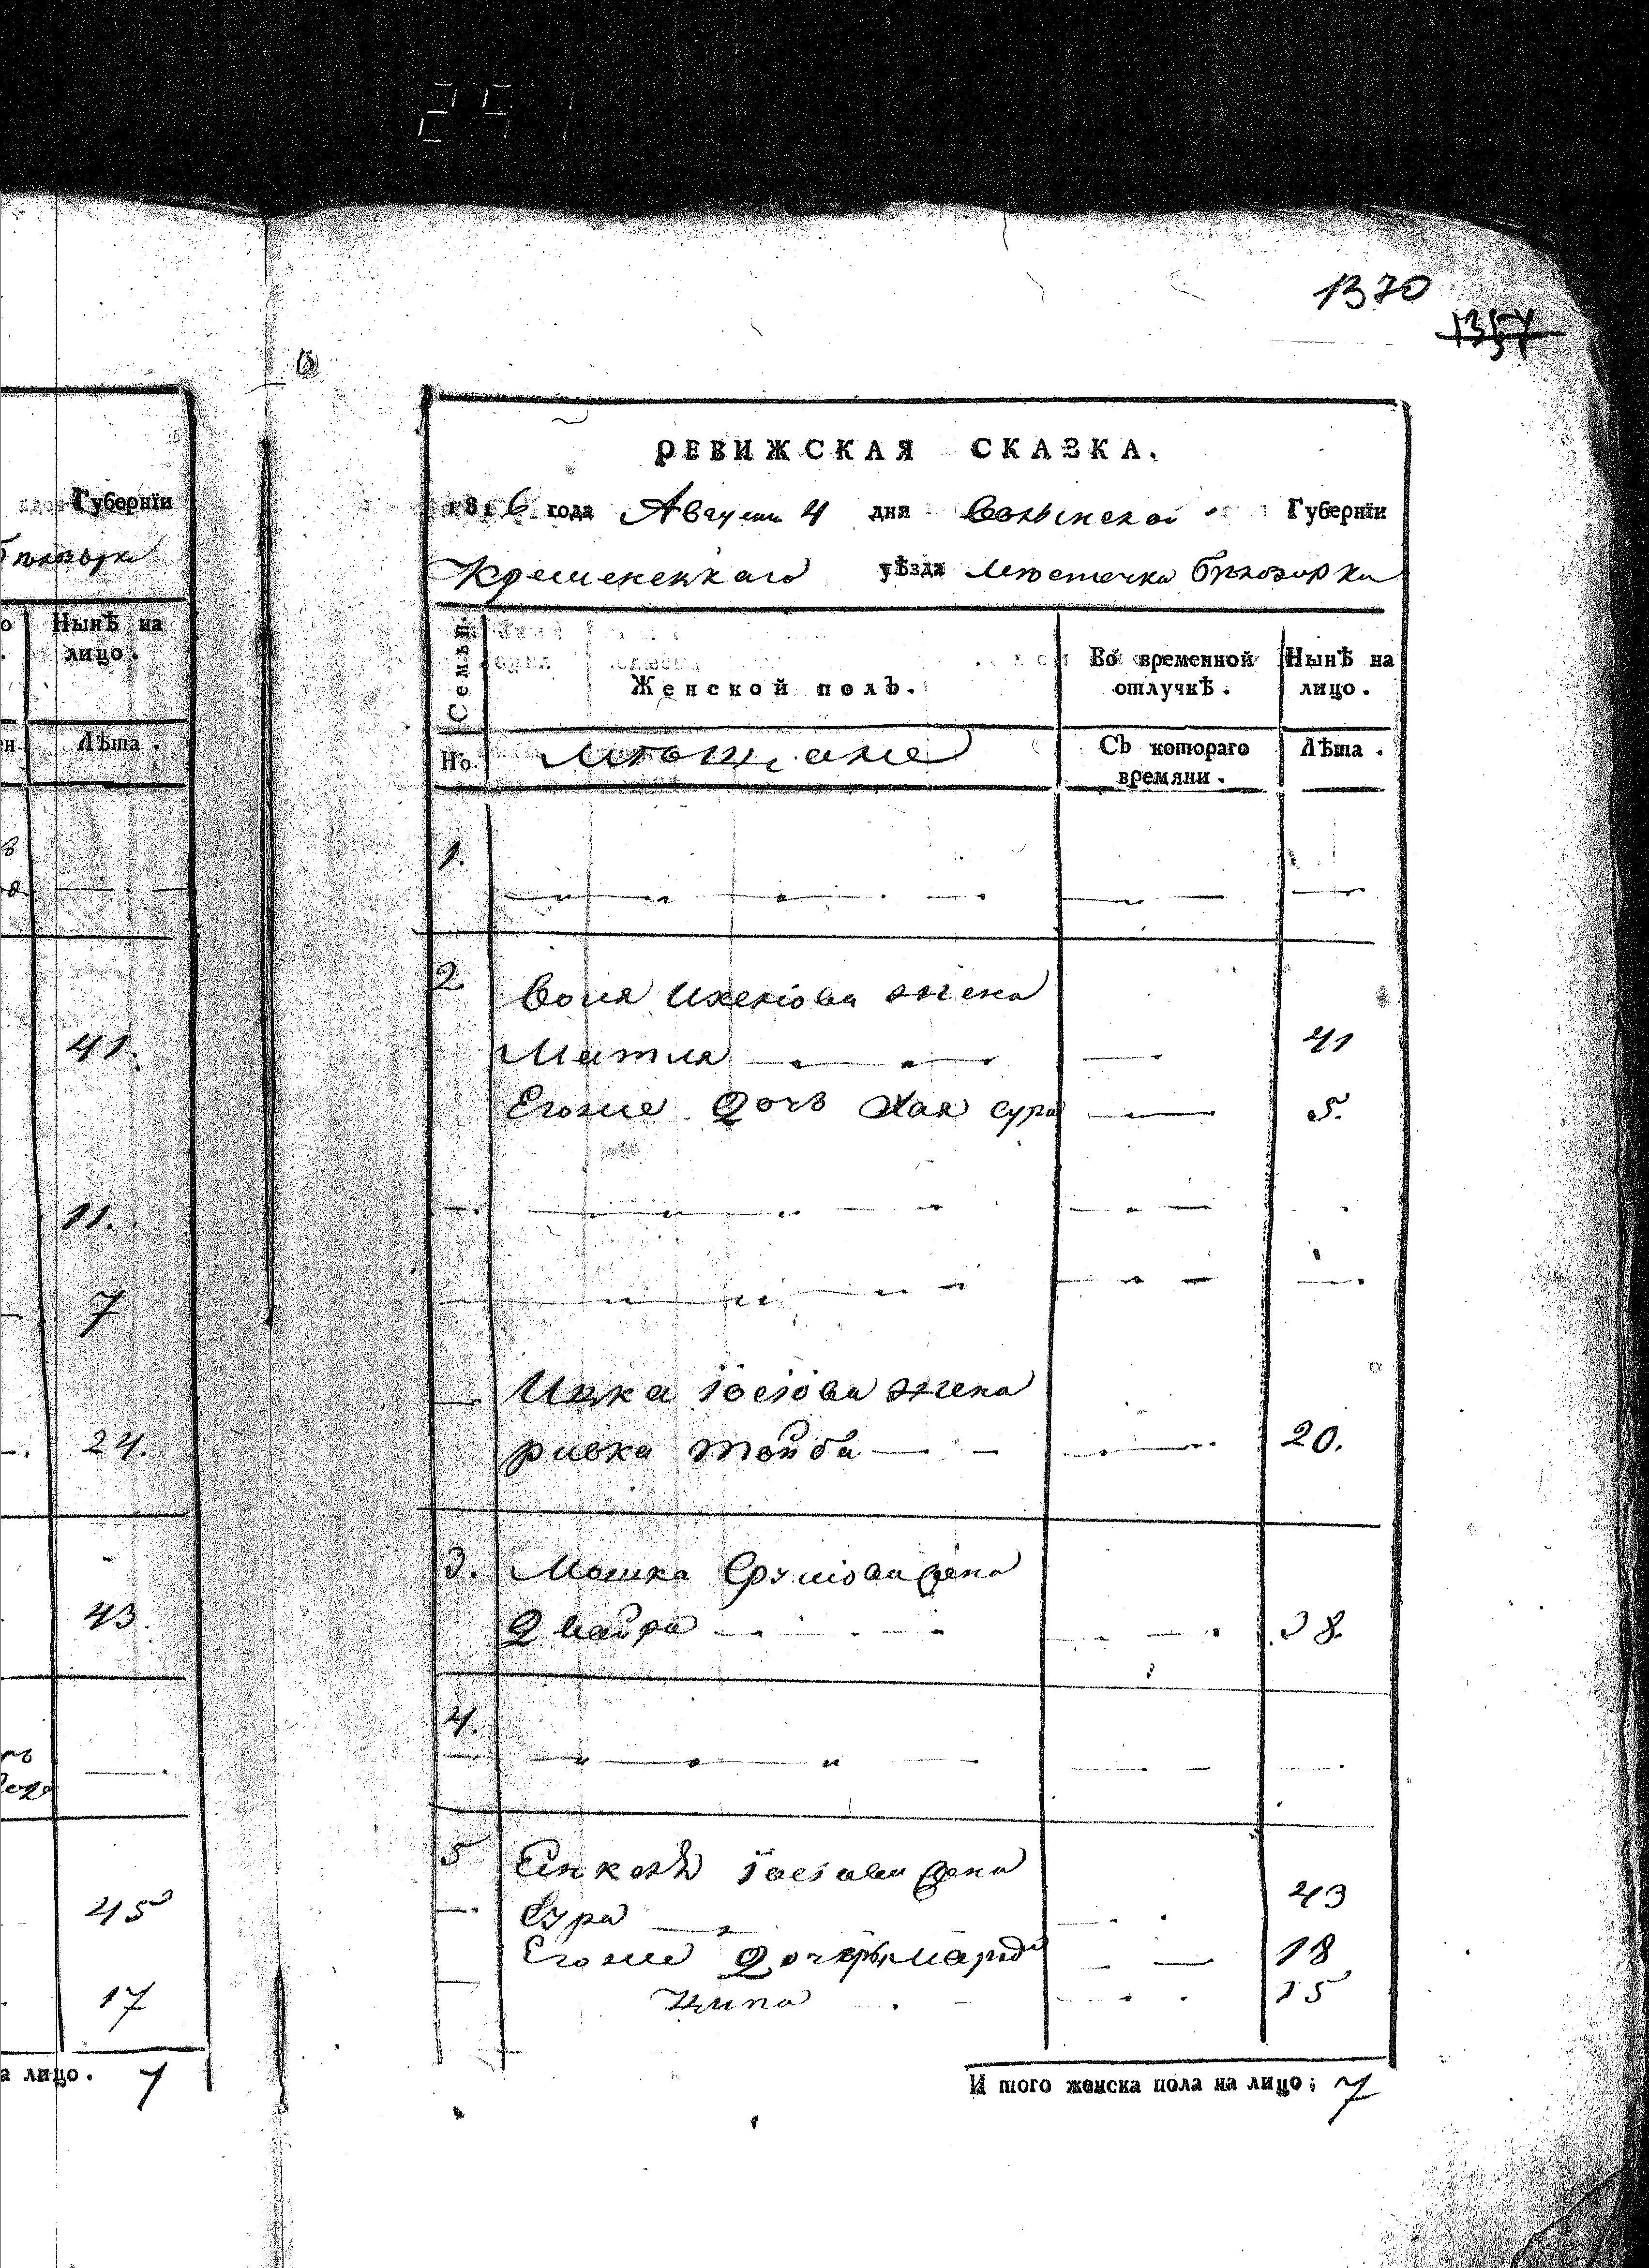 251
1370
1357
Губернїи
Нынѣ на
лицо.
Лѣта.
41.
11.
7
24.
43.
45
17
а лицо. 7
РЕВИЖСКАЯ СКАЗКА.
1816 года Августа 4 дня Волынской Губернїи
Кременецкаго уѣзда местечка Бѣлозорки
Семьи
Женской полъ.
Во временной
отлучкѣ.
Нынѣ на
лицо.
Но.
Мещане
Съ котораго
времяни.
Лѣта.
1.
2
жена
Матля 41
Егоже дочь Хая сура 5.
Ицка Iосiова жена
ривка тойба 20.
3. Мошка Срулiова жена
Двайра 38.
4.
5 Янкеля Iосiова жена
Сура 43
Егоже дочери 18
Ципа 15
И того женска пола на лицо; 7